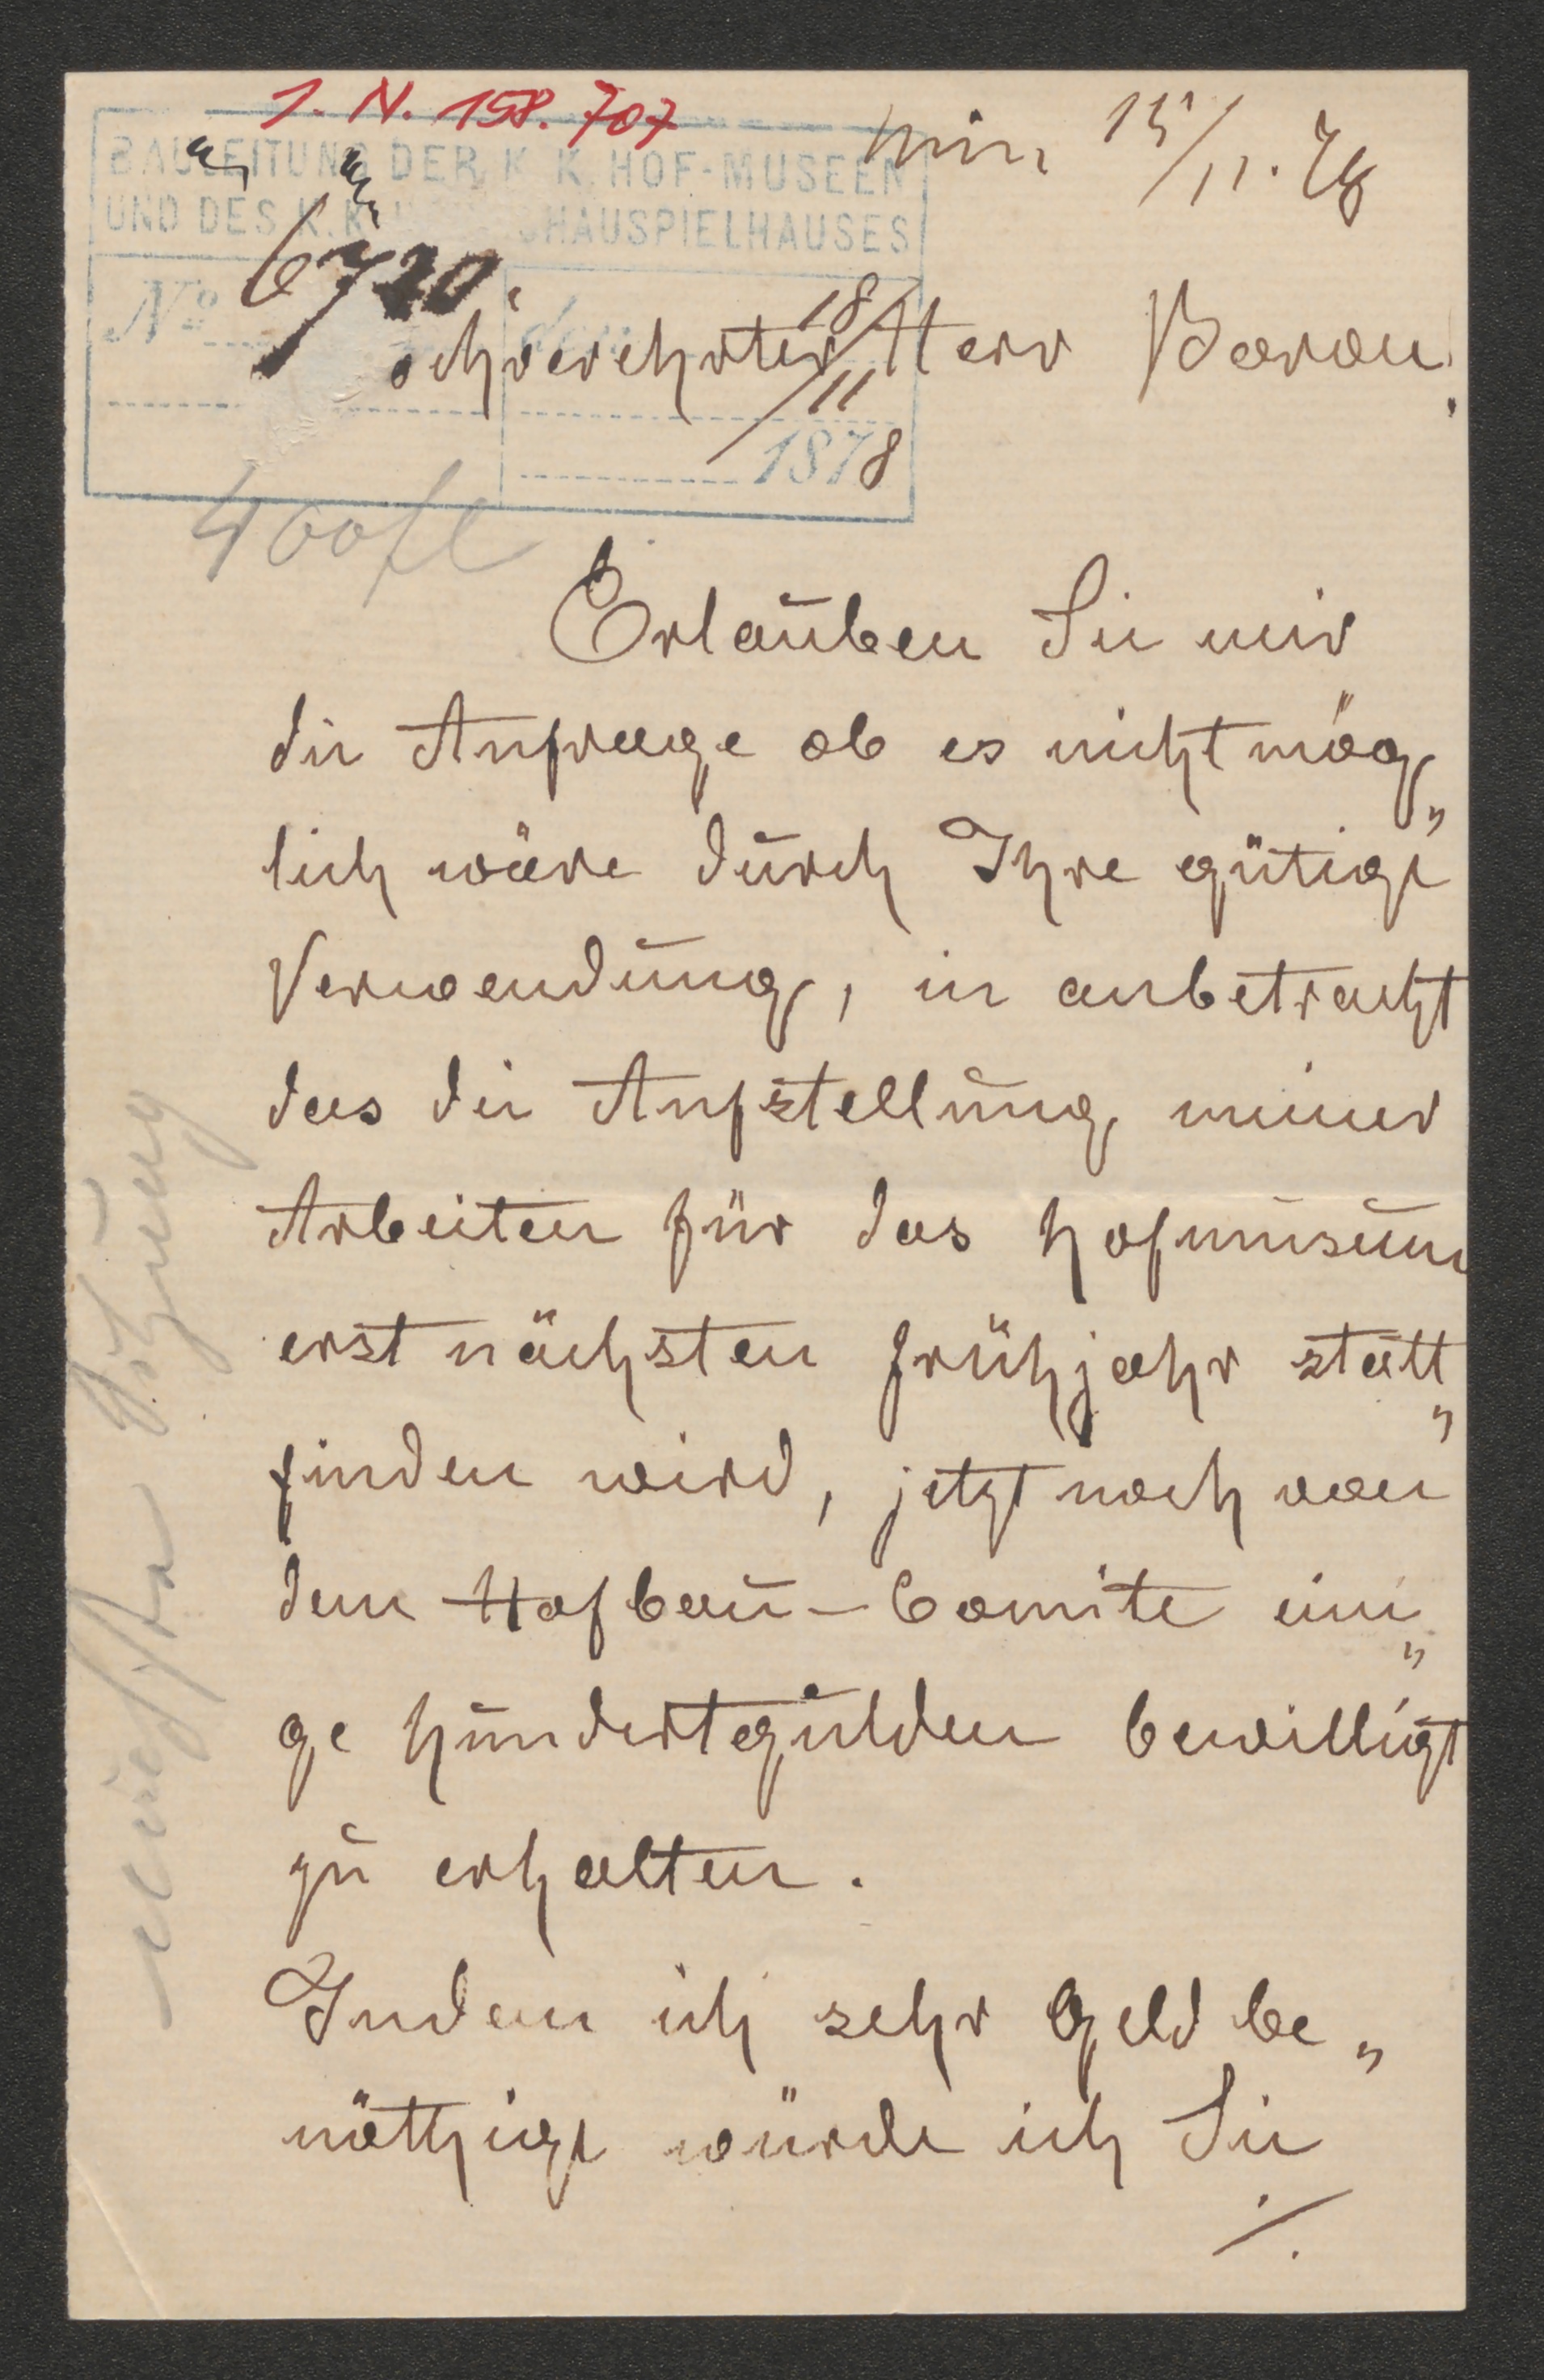 I. N. 158.707
BAULEITUNG DER K. K. HOF-MUSEEN
UND DES K. K. SCHAUSPIELHAUSES
Wien 15/11. 78
No 6720.
18/11
1878
ochverehrter Herr Baron!
400 fl
Erlauben Sie mir
die Anfrage ob es nicht mög„
lich wäre durch Ihre gütige
Verwendung, in anbetracht
das die Aufstellung meiner
Arbeiten für das Hofmuseum
erst nächsten Frühjahr statt„
finden wird, jetzt noch von
dem Hofbau-Comite eini„
ge hundertgulden bewilligt
zu erhalten.
Indem ich sehr Geld be„
nöthige würde ich Sie
./.
nächste Sitzung